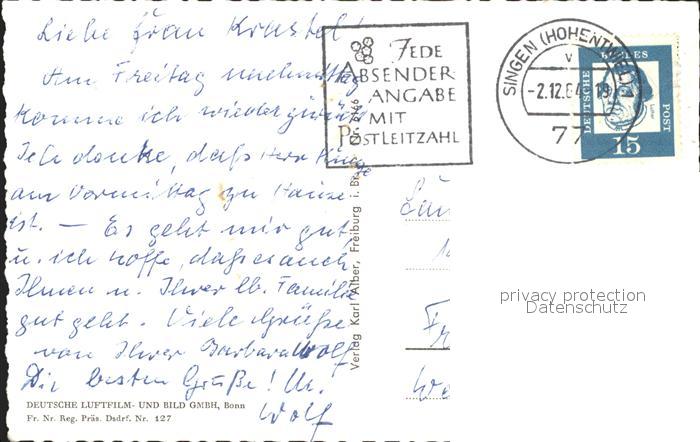 Liebe Frau Krastel!
Am Freitag nachmittag
komme ich wieder zurück
Ich denke, daß Herr
am Vormittag zu Hause
ist. — Es geht mir gut,
u. ich hoffe, daß es auch
Ihnen u. Ihrer lb. Familie
gut geht. Viele Grüße
von Ihrer Barbara Wolf
Die besten Grüße! M.
Wolf
DEUTSCHE LUFTFILM- UND BILD GMBH, Bonn
Fr. Nr. Reg. Präs. Dsdrf. Nr. 127
Verlag Karl Alber, Freiburg i. Br.
JEDE
ABSENDER
ANGABE
MIT
POSTLEITZAHL
SINGEN (HOHENTWIEL)
v
-2.12.64.-19
77
DEUTSCHE
POST
15
Fr
privacy protection
Datenschutz